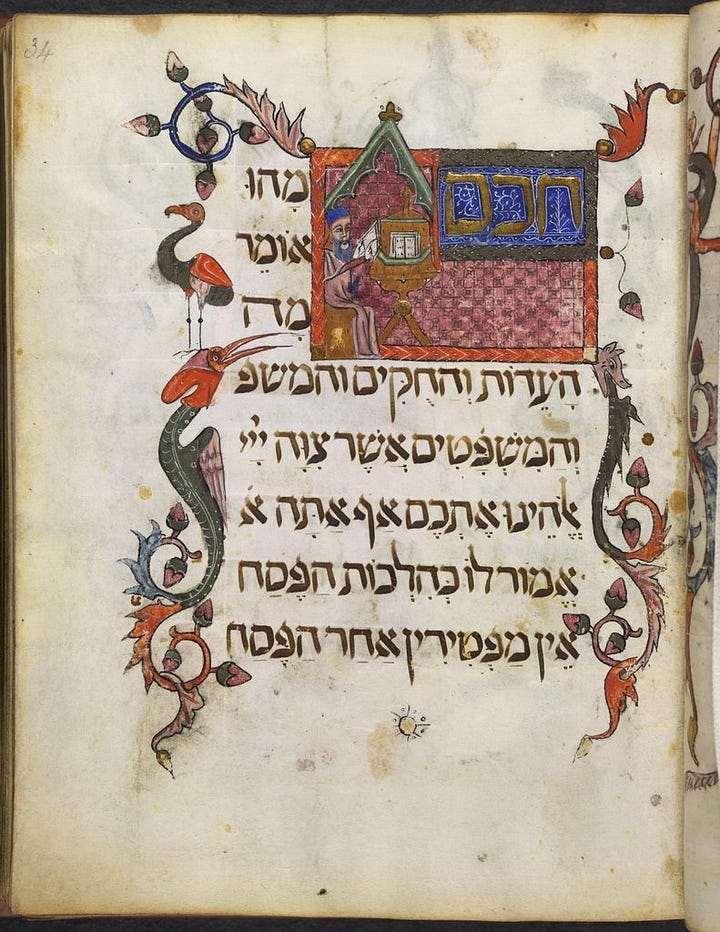 34
חכם מהו
אומר
מה
העדות והחקים והמשפ
והמשפטים אשר צוה ייי
אלהינו אתכם אף אתה א
אמור לו כהלכות הפסח
אין מפטירין אחר הפסח